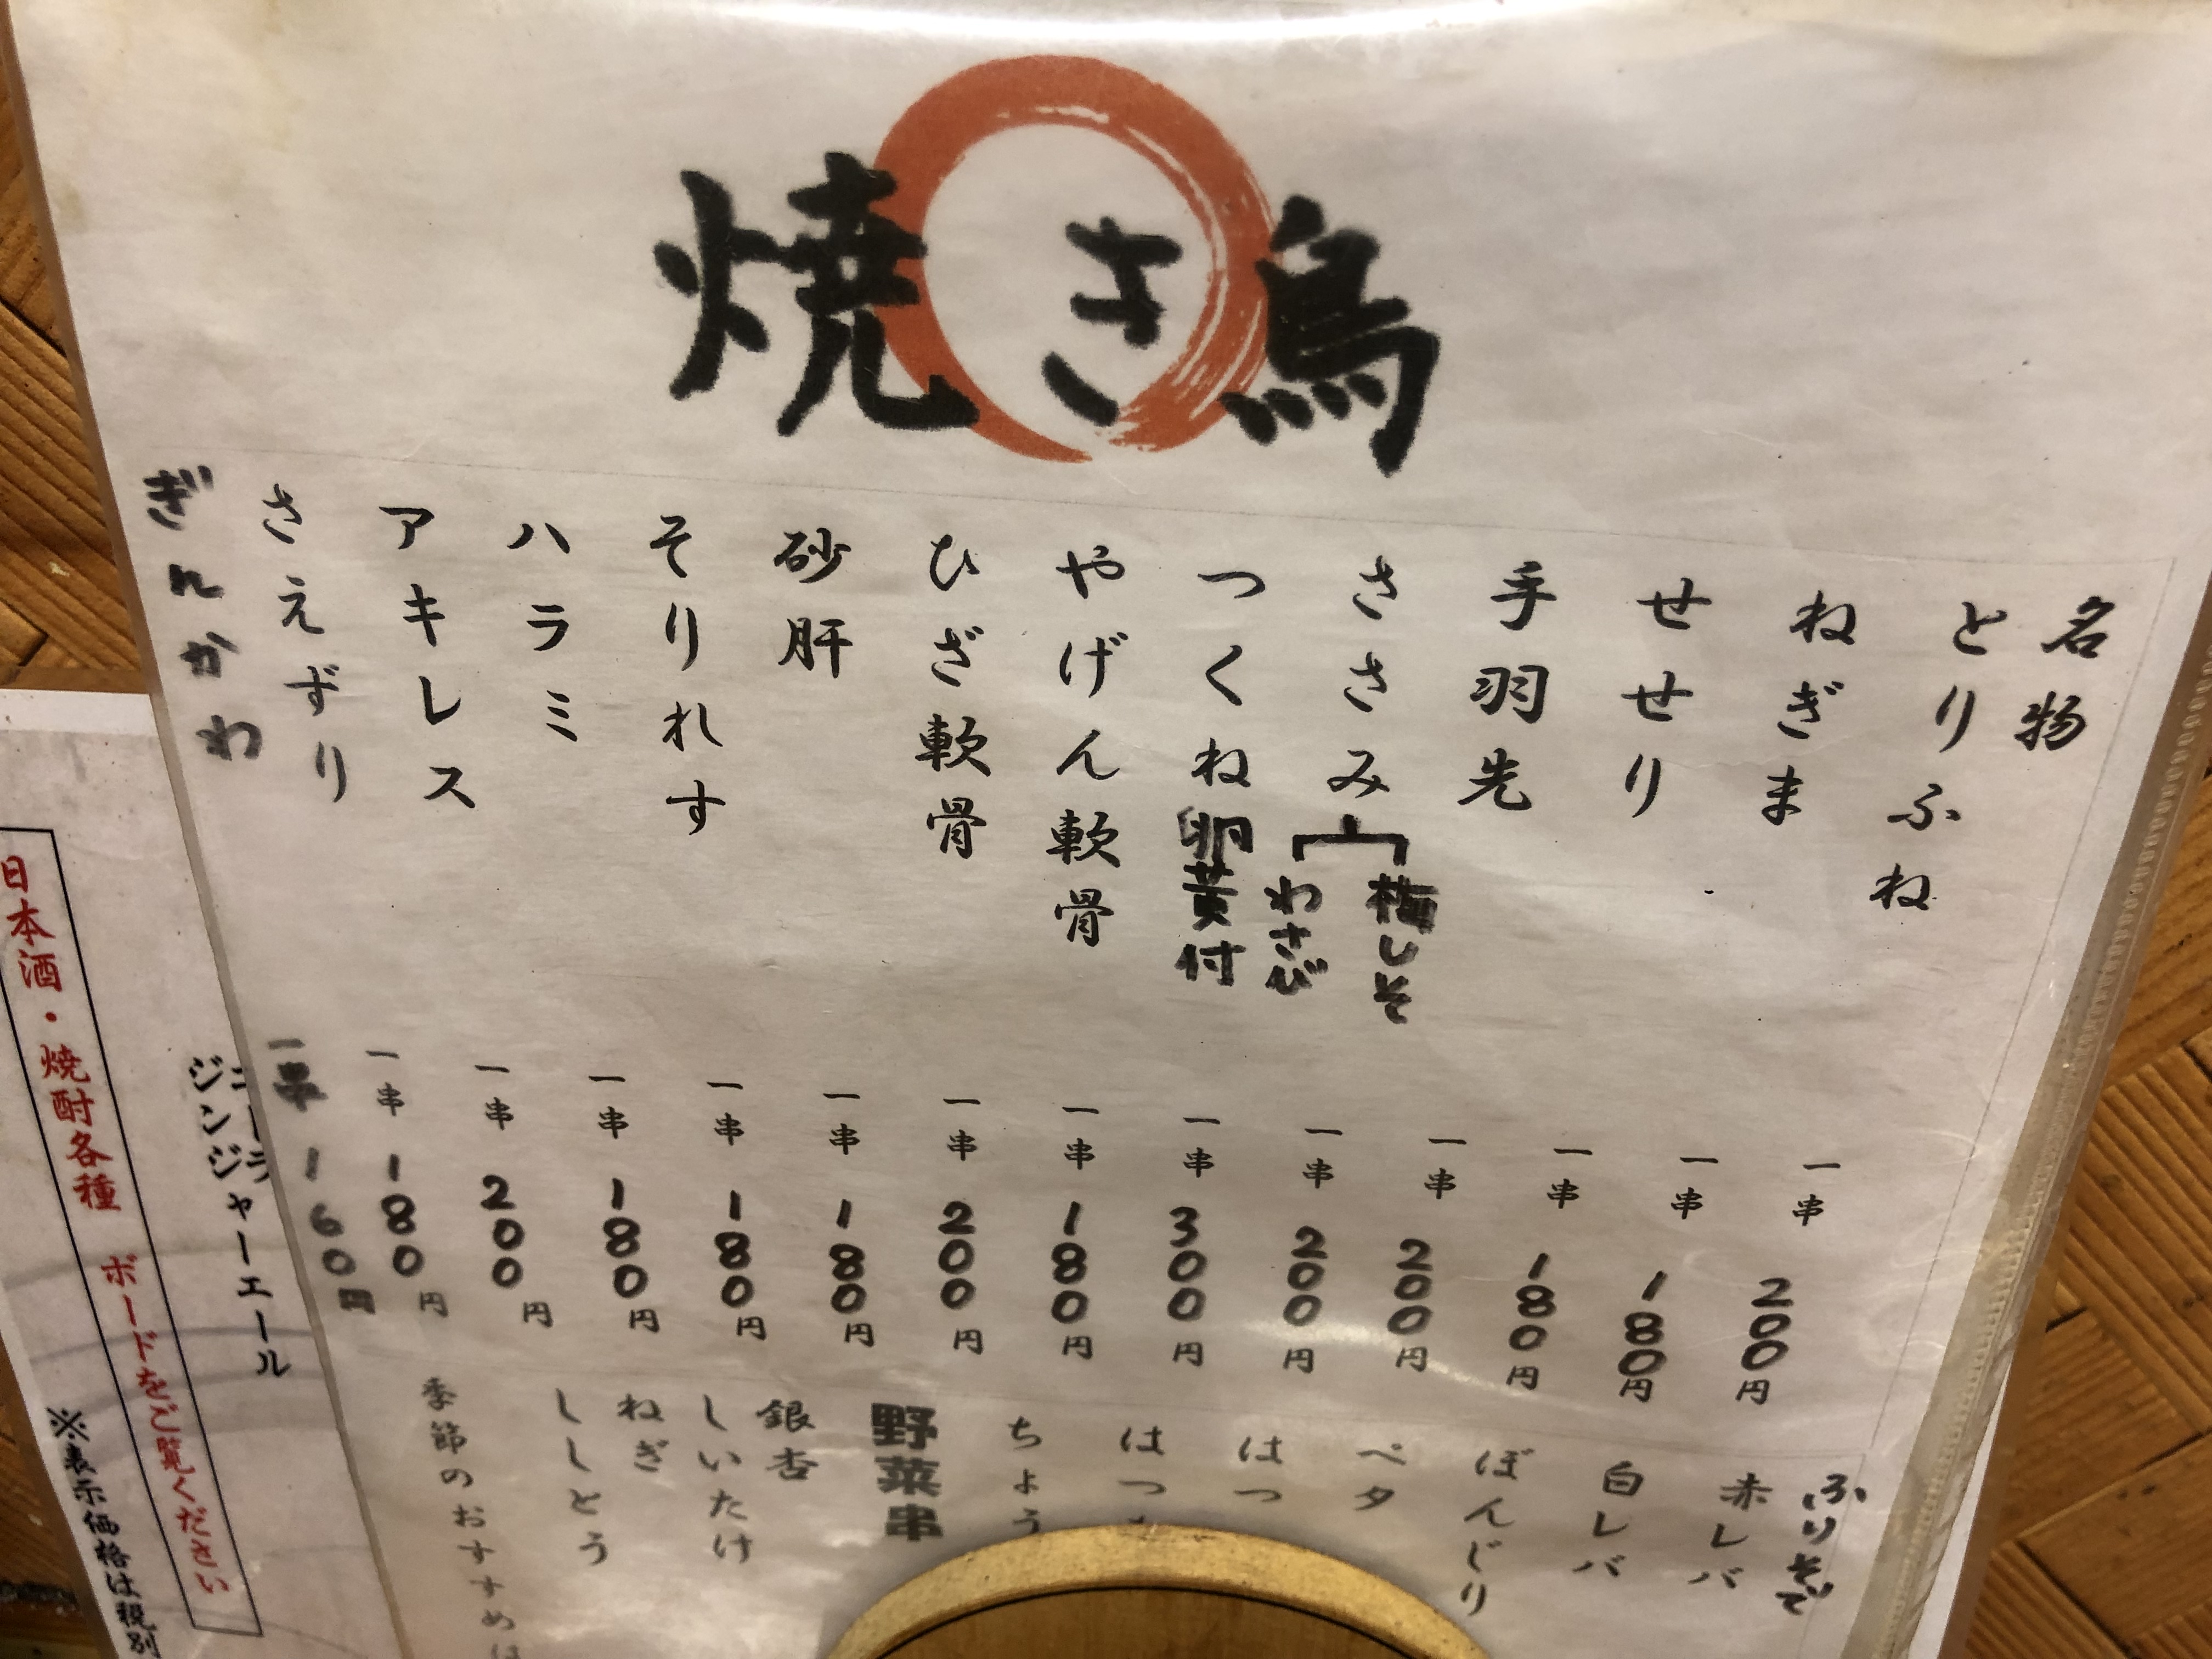 焼き鳥
名物
とりふね 一串 200円
ねぎま 一串 180円
せせり 一串 180円
手羽先 一串 200円
ささみ
梅しそ
わさび
一串 200円
つくね 卵黄付 一串 300円
やげん軟骨 一串 180円
ひざ軟骨 一串 200円
砂肝 一串 180円
そりれす 一串 180円
ハラミ 一串 180円
アキレス 一串 200円
さえずり 一串 180円
ぎんかわ 一串 160円
ふりそで
赤レバ
白レバ
ぼんじり
ペタ
はつ
はつ
ちょう
野菜串
銀杏
しいたけ
ねぎ
ししとう
季節のおすすめは
ジンジャーエール
日本酒・焼酎各種 ボードをご覧ください
※表示価格は税別